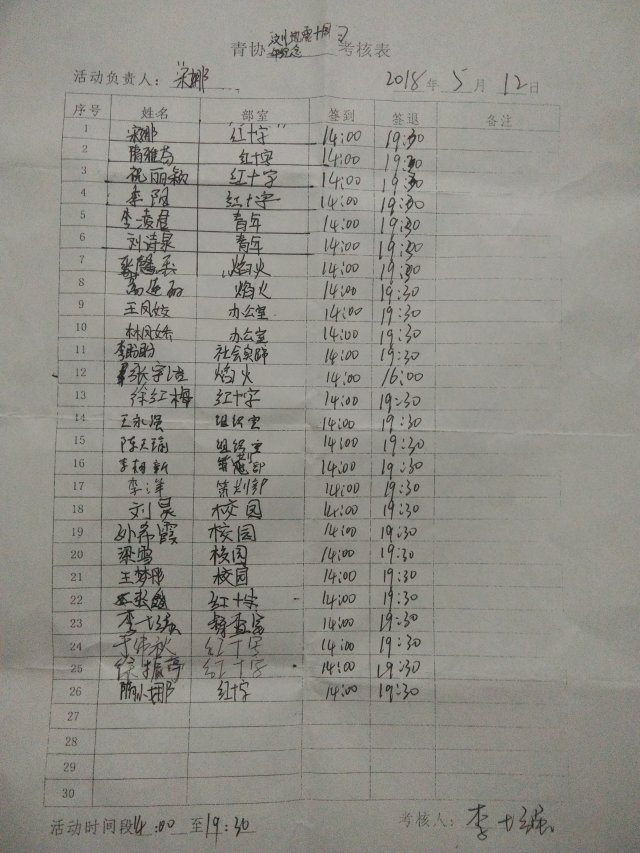 青协 汶川地震十周年纪念 考核表
活动负责人: 宋娜 2018年 5月 12日
序号 姓名 部室 签到 签退 备注
1 宋娜 红十字 14:00 19:30
2 红十字 14:00 19:30
3 祝丽颖 红十字 14:00 19:30
4 红十字 14:00 19:30
5 李凌君 青年 14:00 19:30
6 刘诗泉 青年 14:00 19:30
7 焰火 14:00 19:30
8 焰火 14:00 19:30
9 王凤姣 办公室 14:00 19:30
10 林凤娇 办公室 14:00 19:30
11 李盼盼 社会实践 14:00 19:30
12 张宇 焰火 14:00 16:00
13 徐红梅 红十字 14:00 19:30
14 王永强 组织室 14:00 19:30
15 陈天瑜 组织室 14:00 19:30
16 李相新 策划部 14:00 19:30
17 李洋 策划部 14:00 19:30
18 刘昊 校园 14:00 19:30
19 孙希霞 校园 14:00 19:30
20 梁雪 校园 14:00 19:30
21 王梦彤 校园 14:00 19:30
22 红十字 14:00 19:30
23 李 14:00 19:30
24 于伟秋 红十字 14:00 19:30
25 徐振亭 红十字 14:00 19:30
26 隋小娜 红十字 14:00 19:30
27
28
29
30
活动时间段14:00至19:30 考核人: 李